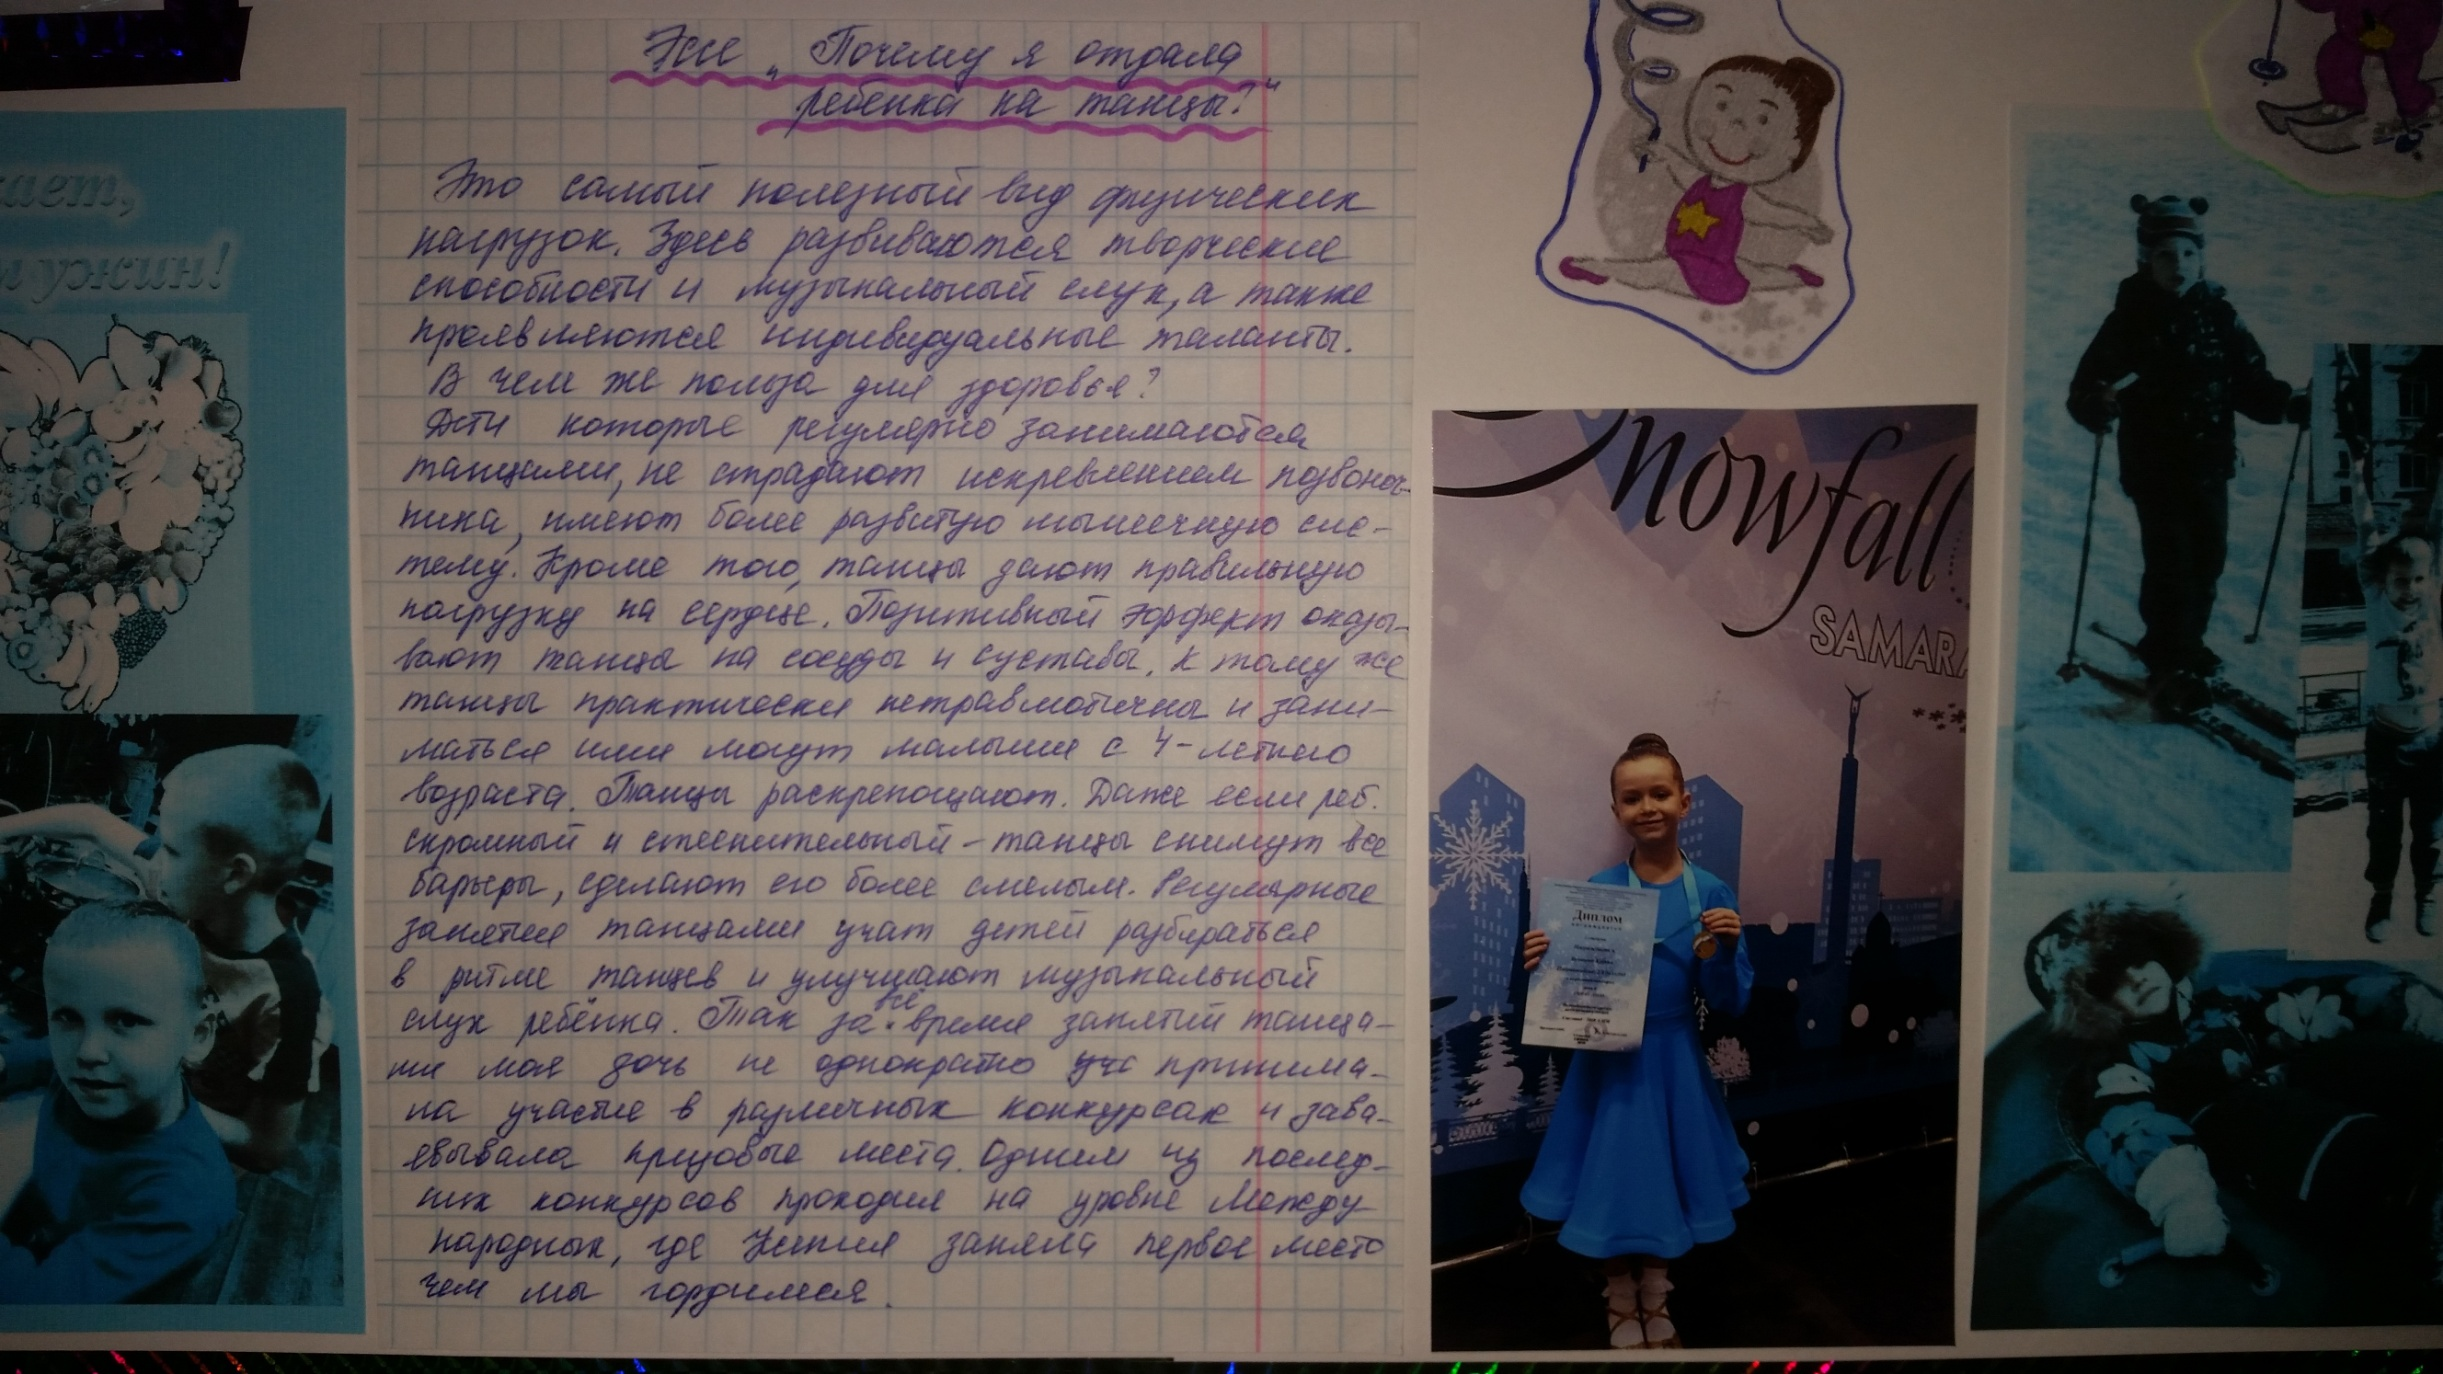 кает,
и ужин!
Эссе „Почему я отдала
ребенка на танцы?"
Это самый полезный вид физических
нагрузок. Здесь развиваются творческие
способности и музыкальный слух, а также
проявляются индивидуальные таланты.
В чем же польза для здоровья?
Дети которые регулярно занимаются
танцами, не страдают искревлением позвоноч-
ника, имеют более развитую мышечную сис-
тему. Кроме того, танцы дают правильную
нагрузку на сердце. Позитивный эффект оказы-
вают танцы на сосуды и суставы. К тому же
танцы практически нетравмотичны и зани-
маться ими могут малыши с 4-летнего
возраста. Танцы раскрепощают. Даже если реб.
скромный и стеснительный - танцы снимут все
барьеры, сделают его более смелым. Регулярные
занятия танцами учат детей разбираться
в ритме танцев и улучшают музыкальный
слух ребёнка. Так за все время занятий танца-
ми моя дочь не однократно принима-
ла участие в различных конкурсах и заво-
евывала призовые места. Одним из послед-
них конкурсов проходил на уровне Между-
народных, где Ксения заняла первое место
чем мы гордимся.
Snowfall
SAMARA
Диплом